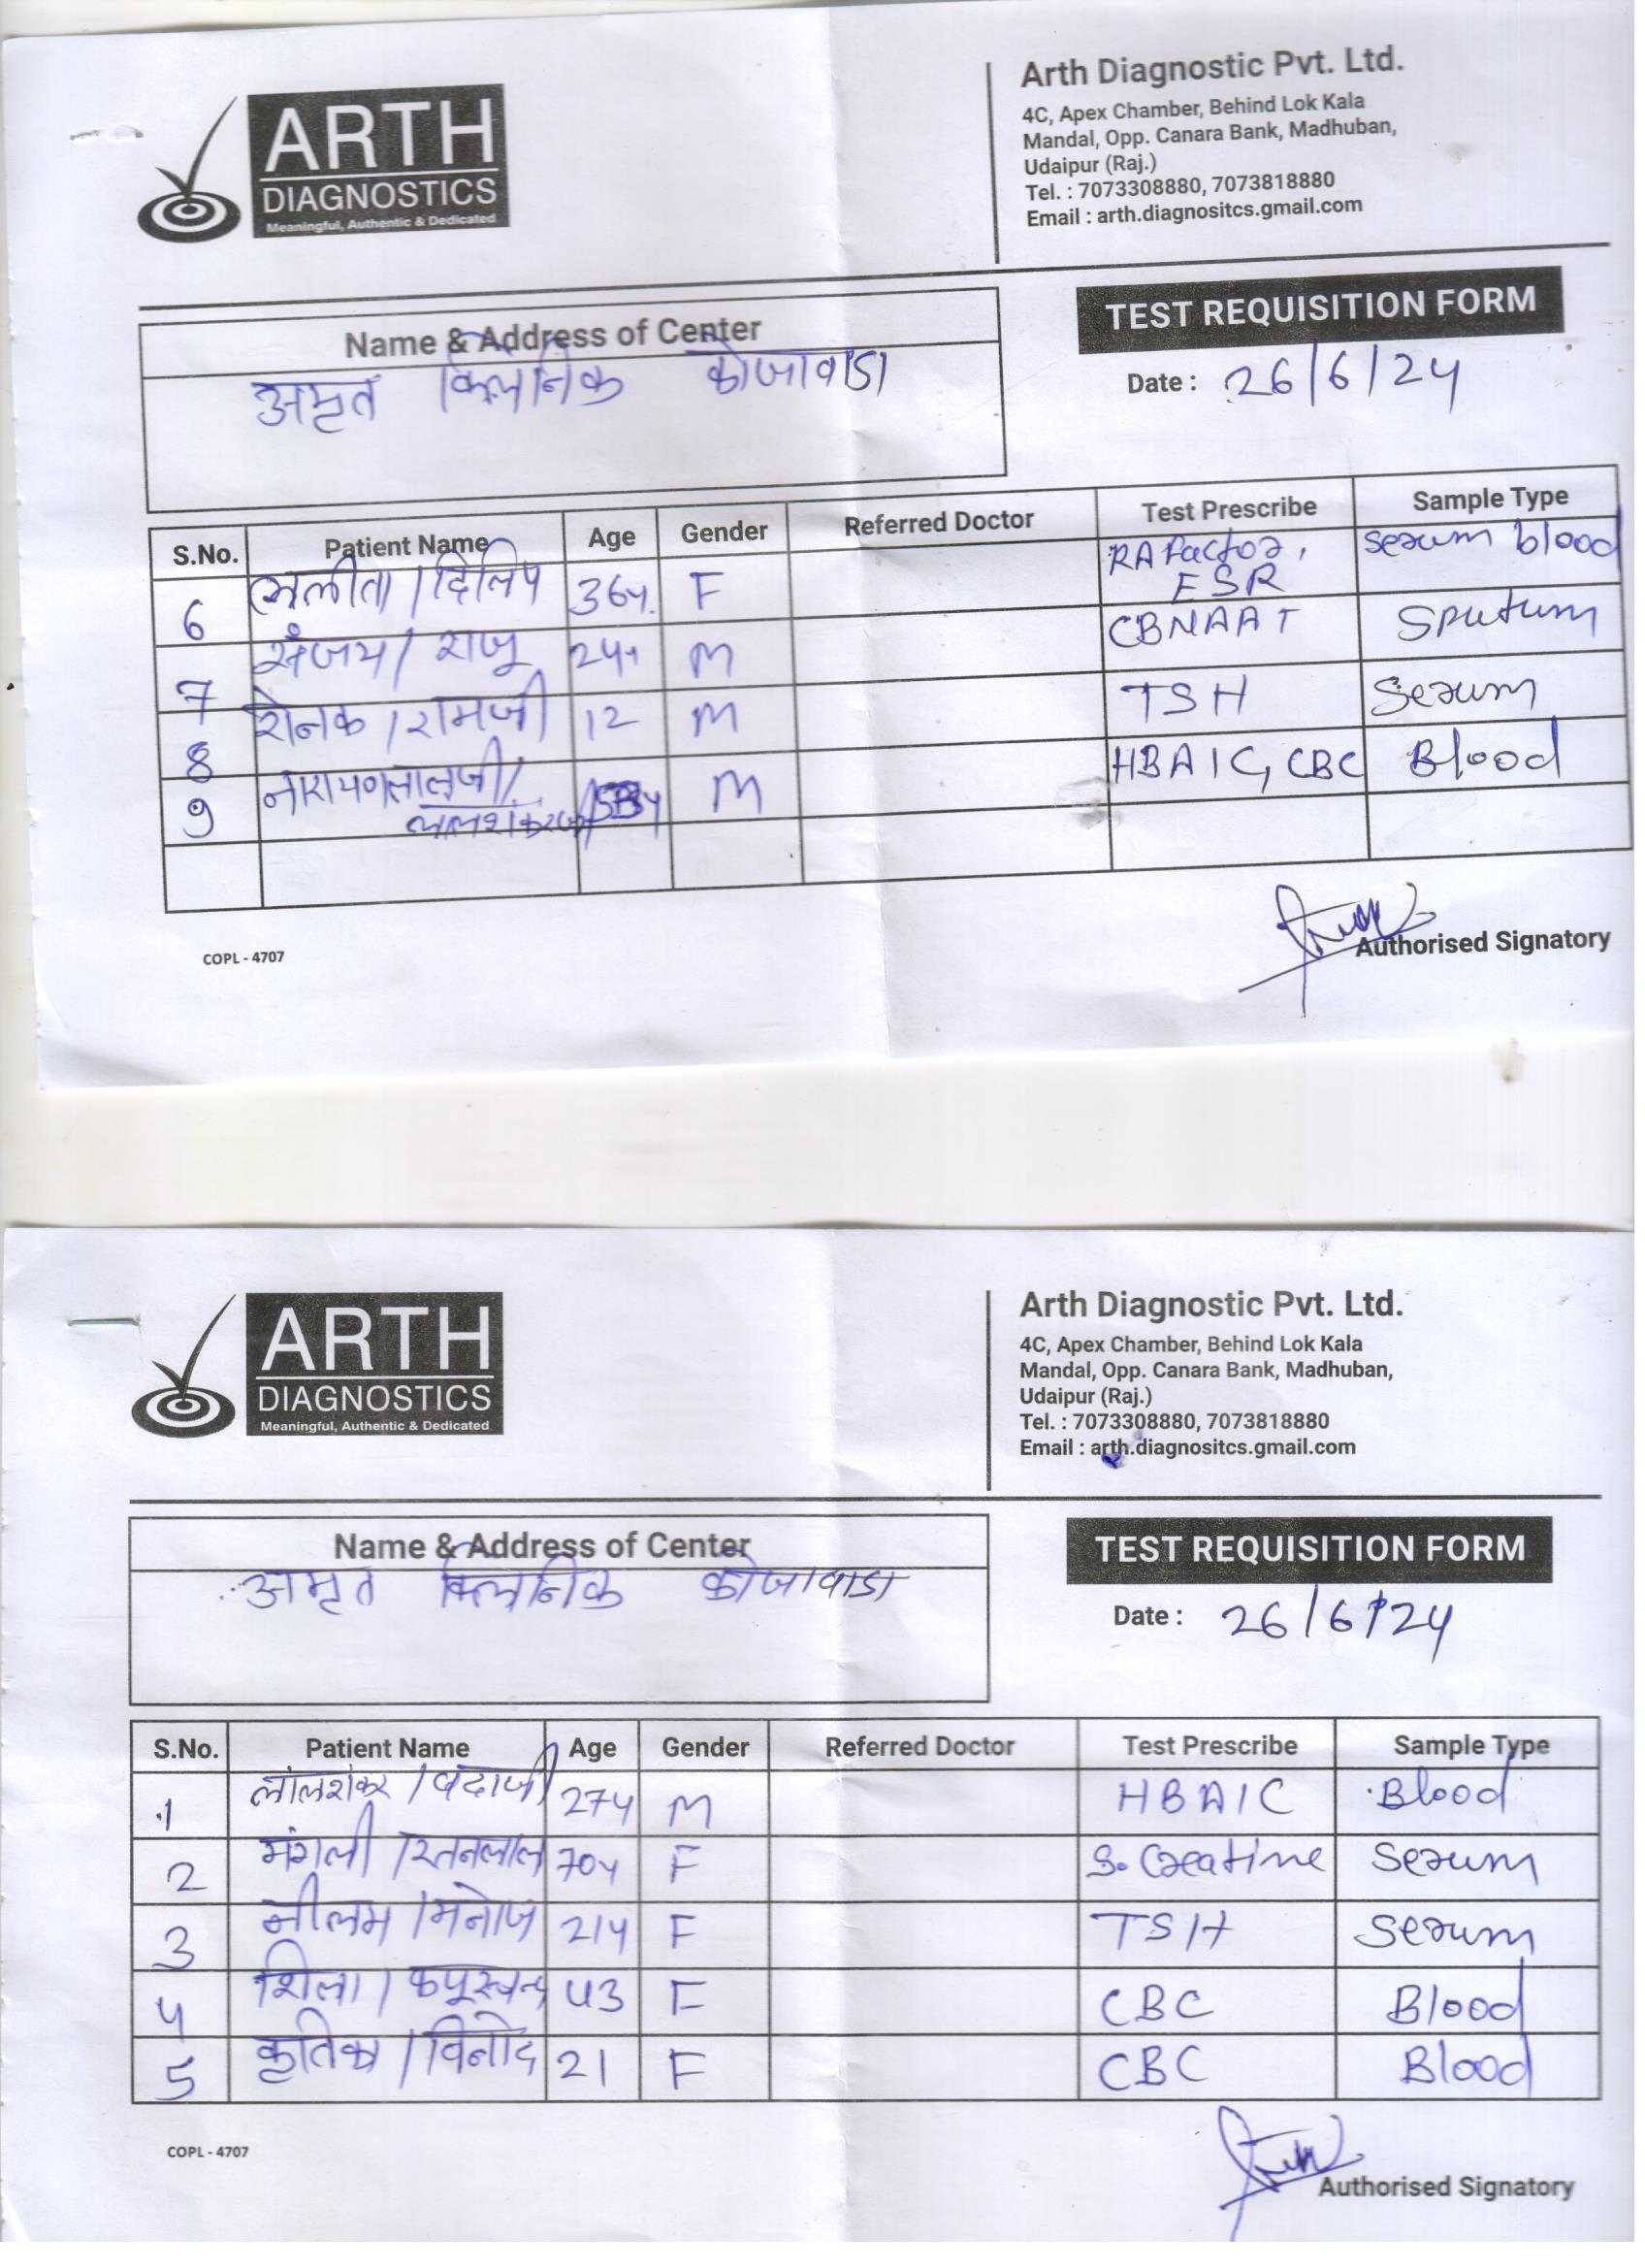 ARTH
DIAGNOSTICS
Meaningful, Authentic & Dedicated
Arth Diagnostic Pvt. Ltd.
4C, Apex Chamber, Behind Lok Kala
Mandal, Opp. Canara Bank, Madhuban,
Udaipur (Raj.)
Tel. : 7073308880, 7073818880
Email : arth.diagnositcs.gmail.com
Name & Address of Center
अमृत क्लिनिक कोजावाडा
TEST REQUISITION FORM
Date : 26/6/24
S.No. Patient Name Age Gender Referred Doctor Test Prescribe Sample Type
6 ललीता / दिलिप 36y. F RA Factor, ESR Serum blood
7 संजय / राजू 24y M CBNAAT Sputum
8 रोनक / रामजी 12 M TSH Serum
9 नारायणलालजी / लालशंकरजी M HBA1C, CBC Blood
COPL - 4707
Authorised Signatory
ARTH
DIAGNOSTICS
Meaningful, Authentic & Dedicated
Arth Diagnostic Pvt. Ltd.
4C, Apex Chamber, Behind Lok Kala
Mandal, Opp. Canara Bank, Madhuban,
Udaipur (Raj.)
Tel. : 7073308880, 7073818880
Email : arth.diagnositcs.gmail.com
Name & Address of Center
अमृत क्लिनिक कोजावाडा
TEST REQUISITION FORM
Date : 26/6/24
S.No. Patient Name Age Gender Referred Doctor Test Prescribe Sample Type
1 लालशंकर / वदाजी 27y M HBA1C Blood
2 मंगली / रतनलाल 70y F S. Creatine Serum
3 नीलम / मनोज 21y F TSH Serum
4 शिला / कपूरचन्द 43 F CBC Blood
5 कृतिका / विनोद 21 F CBC Blood
COPL - 4707
Authorised Signatory